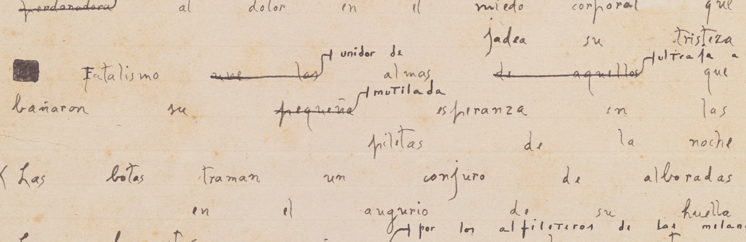 perdonadora al dolor en el miedo corporal que
jadea su tristeza
unidor de ultraja a
Fatalismo une las almas de aquellos que
mutilada
bañaron su pequeña esperanza en las
piletas de la noche
Las botas traman un conjuro de alboradas
en el augurio de su huella
por los alfileteros de las